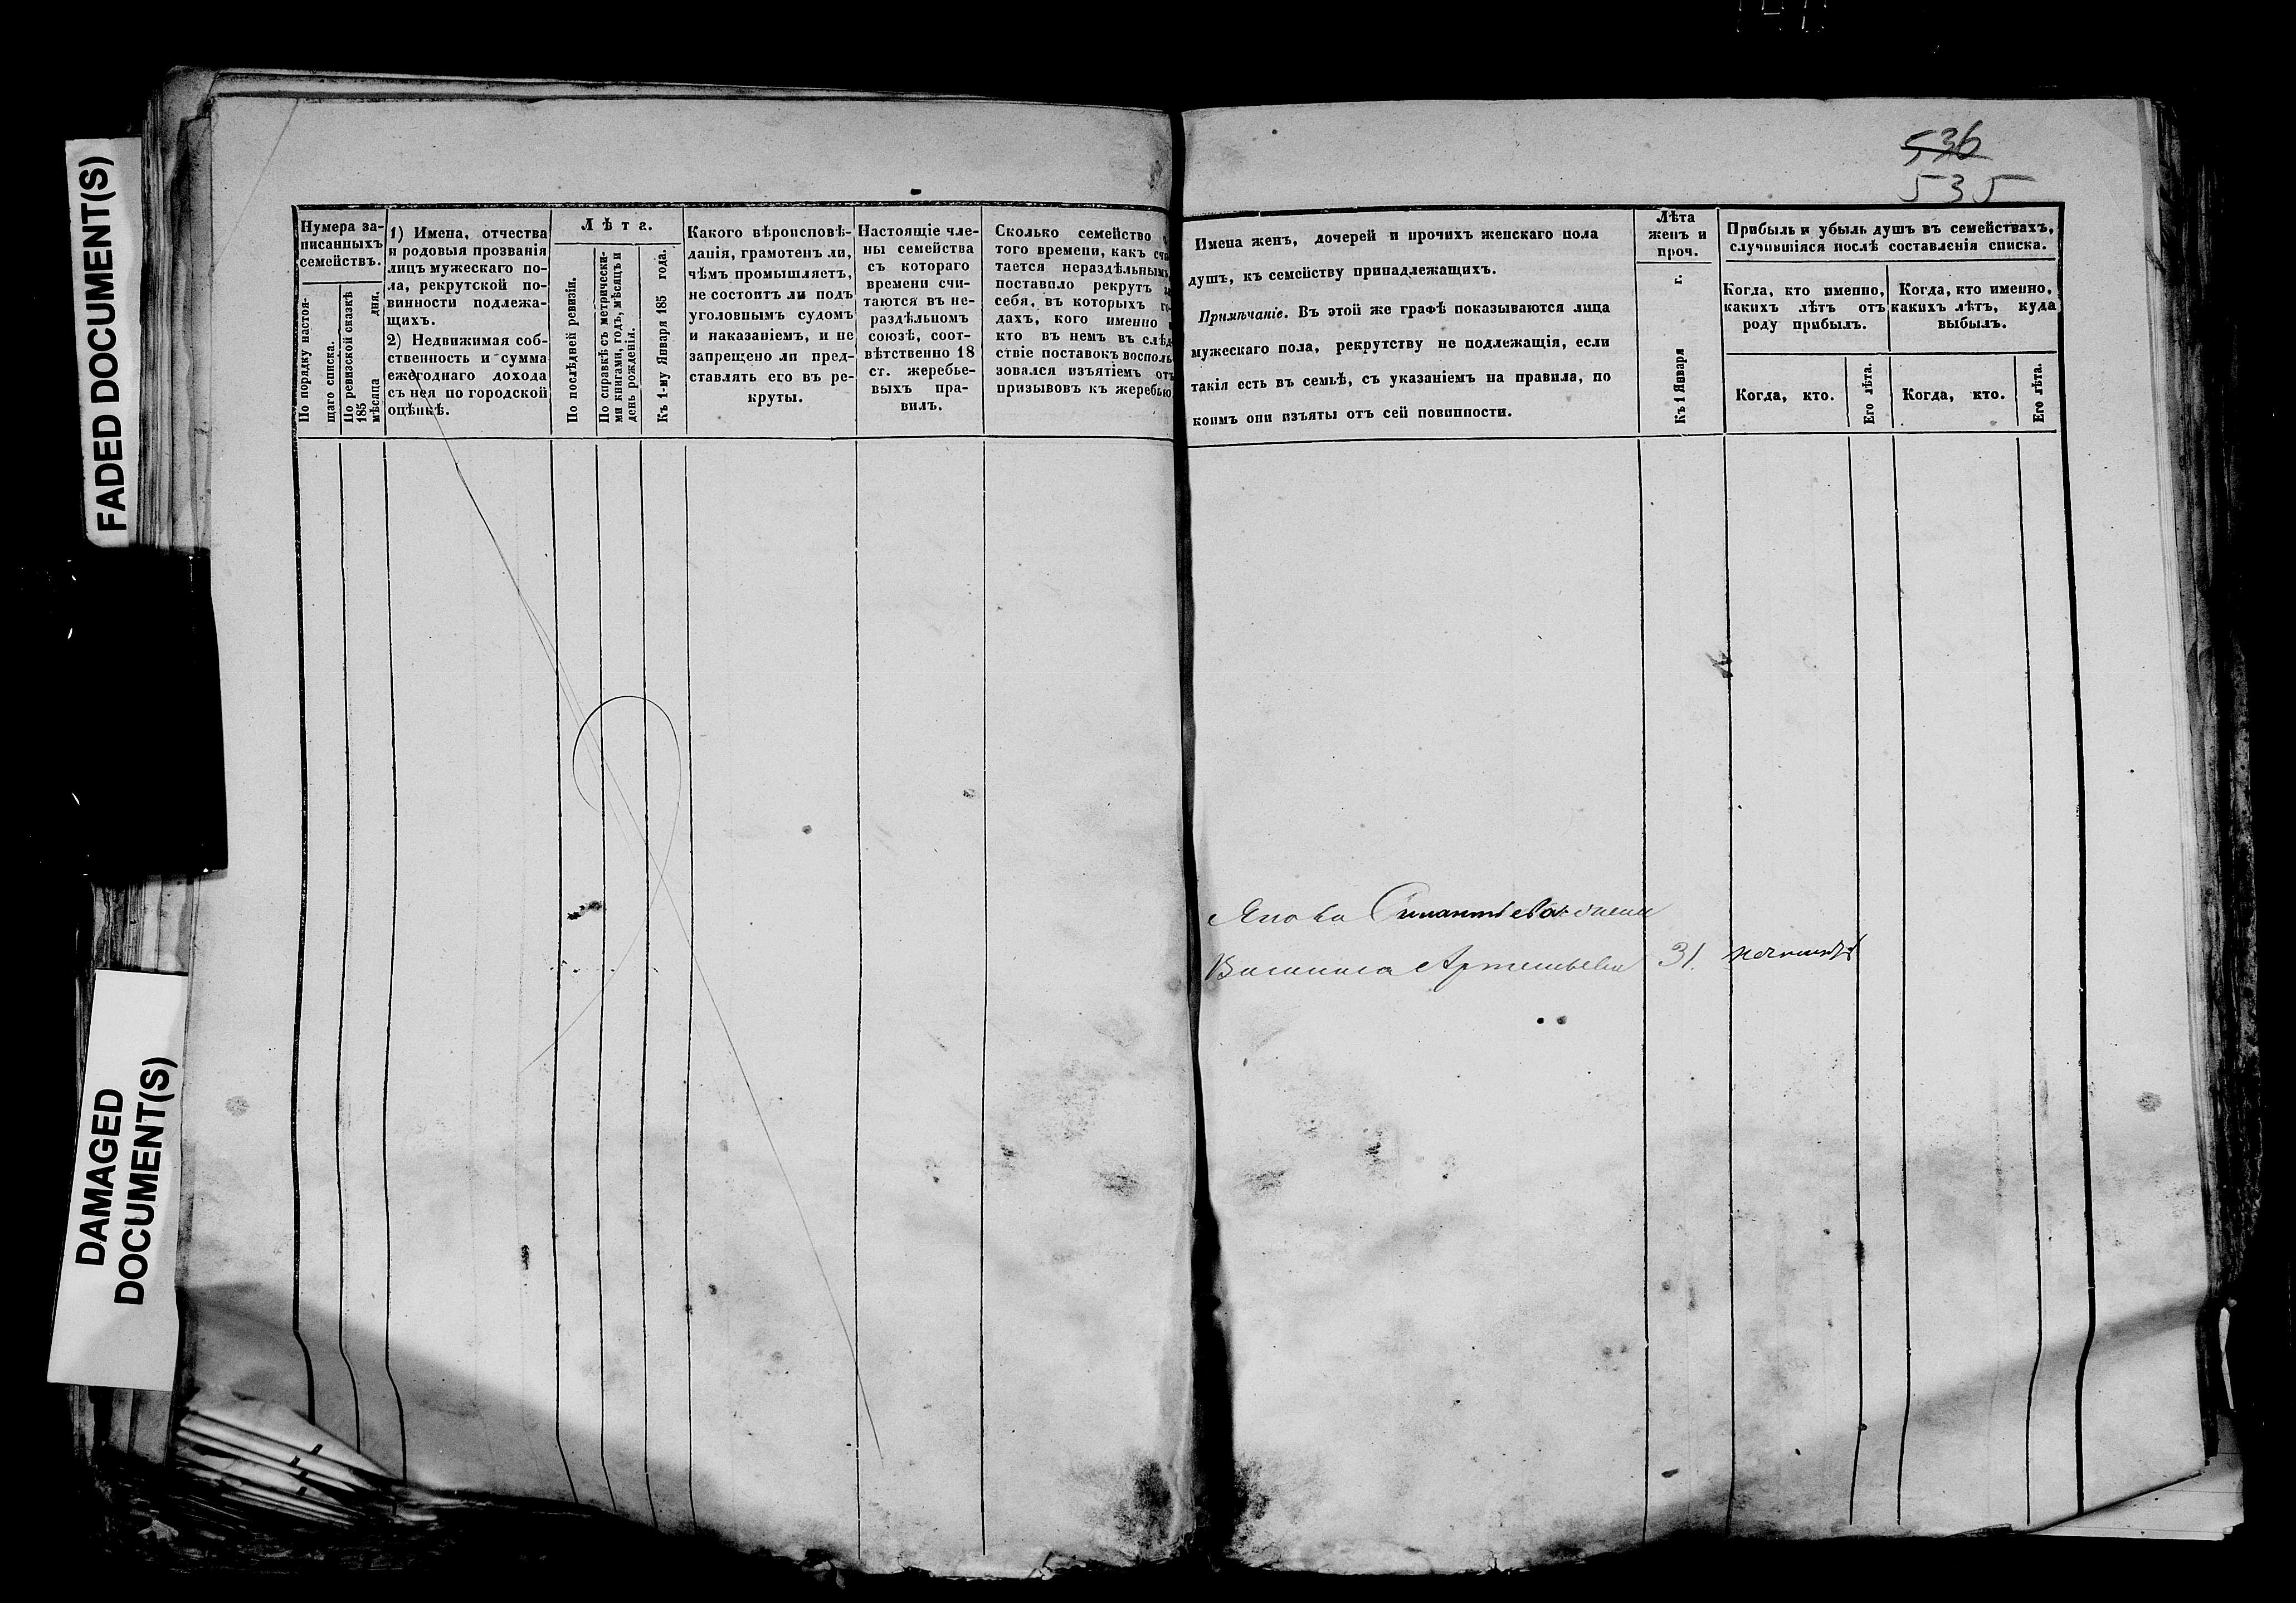 FADED DOCUMENT(S)
DAMAGED
DOCUMENT(S)
Нумера за-
писанныхъ
семействъ.
По порядку настоя-
щаго списка.
По ревизской сказкѣ
185 мѣсяца дня.
1) Имена, отчества
и родовыя прозванія
лицъ мужескаго по-
ла, рекрутской по-
винности подлежа-
щихъ.
2) Недвижимая соб-
ственность и сумма
ежегоднаго дохода
съ нея по городской
оцѣнкѣ.
Лѣта.
По послѣдней ревизіи.
По справкѣ съ метрически-
ми книгами, годъ, мѣсяцъ и
день рожденія.
Къ 1-му Января 185 года.
Какого вѣроисповѣ-
данія, грамотенъ ли,
чѣмъ промышляетъ,
не состоитъ ли подъ
уголовнымъ судомъ
и наказаніемъ, и не
запрещено ли пред-
ставлять его въ ре-
круты.
Настоящіе чле-
ны семейства
съ котораго
времени счи-
таются въ не-
раздѣльномъ
союзѣ, соот-
вѣтственно 18
ст. жеребье-
выхъ пра-
вилъ.
Сколько семейство
того времени, какъ счи
тается нераздѣльнымъ
поставило рекрутъ
себя, въ которыхъ го-
дахъ, кого именно
кто въ немъ въ слѣд
ствіе поставокъ восполь
зовался изъятіемъ отъ
призывовъ къ жеребью
536
535
Имена женъ, дочерей и прочихъ женскаго пола
душъ, къ семейству принадлежащихъ.
Примѣчаніе. Въ этой же графѣ показываются лица
мужескаго пола, рекрутству не подлежащія, если
такія есть въ семьѣ, съ указаніемъ на правила, по
коимъ они изъяты отъ сей повинности.
Лѣта
женъ и
проч.
Къ 1 Января г.
Прибыль и убыль душъ въ семействахъ,
случившіяся послѣ составленія списка.
Когда, кто именно,
какихъ лѣтъ отъ
роду прибылъ.
Когда, кто именно,
какихъ лѣтъ, куда
выбылъ.
Когда, кто.
Его лѣта.
Когда, кто.
Его лѣта.
Якова жена
Василиса Артемьева 31.